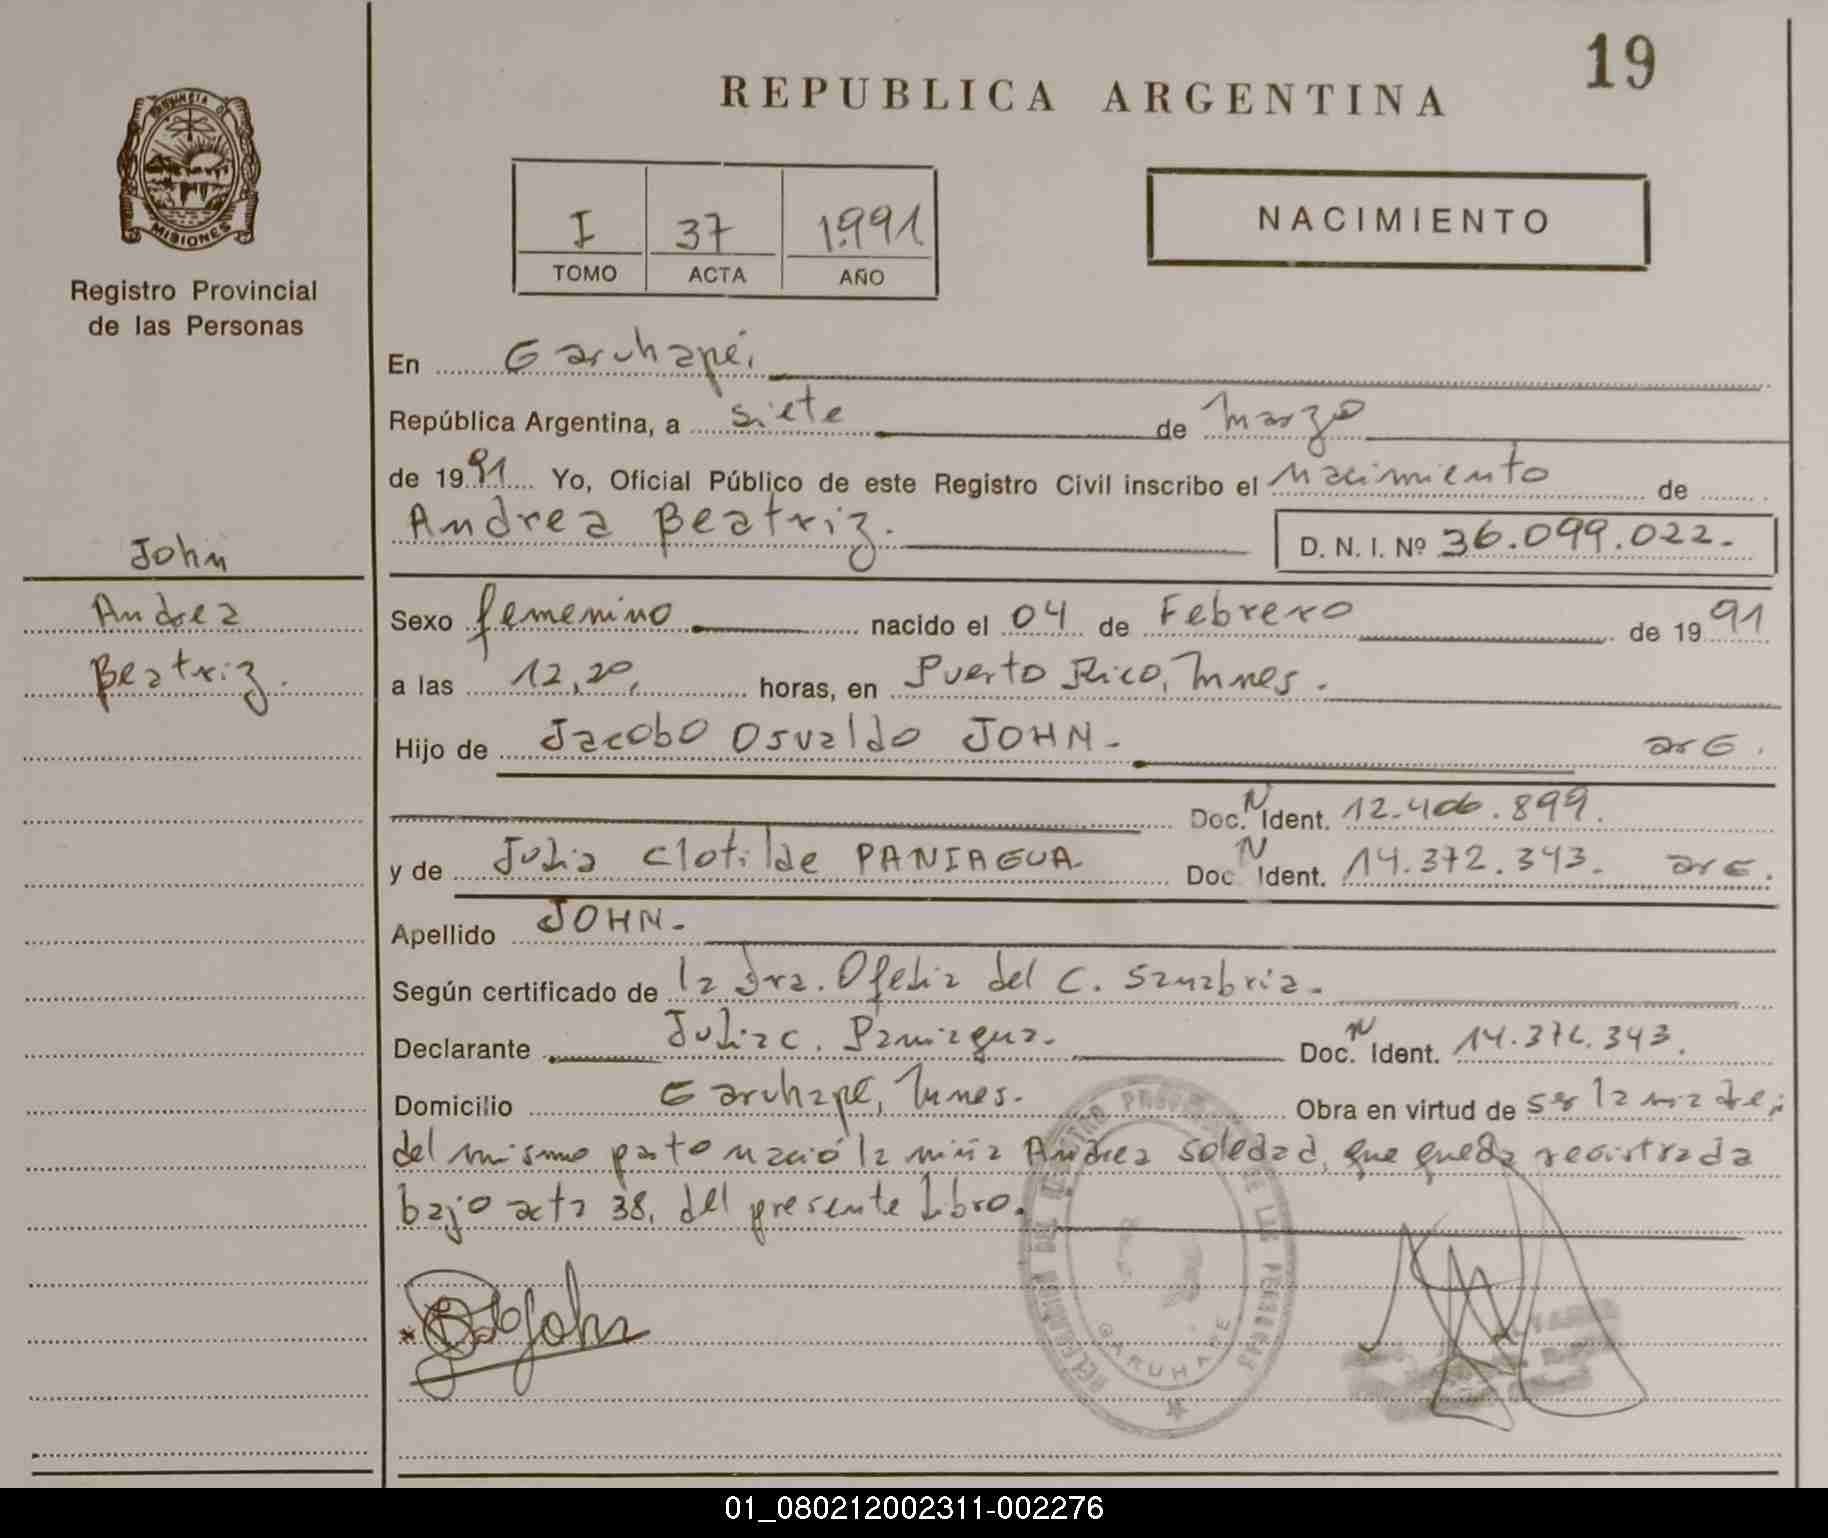 19
REPUBLICA ARGENTINA
PROVINCIA DE
MISIONES
Registro Provincial
de las Personas
I 37 1.991
TOMO ACTA AÑO
NACIMIENTO
En Garuhapé,
República Argentina, a siete de marzo
de 1991 Yo, Oficial Público de este Registro Civil inscribo el nacimiento de
Andrea Beatriz.
D. N. I. Nº 36.099.022.-
John
Andrea
Beatriz.
Sexo femenino nacido el 04 de Febrero de 1991
a las 12,20, horas, en Puerto Rico, Mnes.
Hijo de Jacobo Osvaldo JOHN.- arG.
Doc. N Ident. 12.406.899.
y de Julia Clotilde PANIAGUA. Doc N Ident. 14.372.343. arG.
Apellido JOHN.-
Según certificado de la Dra. Ofelia del C. Sanabria.
Declarante Julia C. Paniagua. Doc. N Ident. 14.372.343.
Domicilio Garuhapé, Mnes. Obra en virtud de ser la madre;
del mismo parto nació la niña Andrea Soledad, que queda registrada
bajo acta 38, del presente Libro.
John
GARUHAPE
01_080212002311-002276